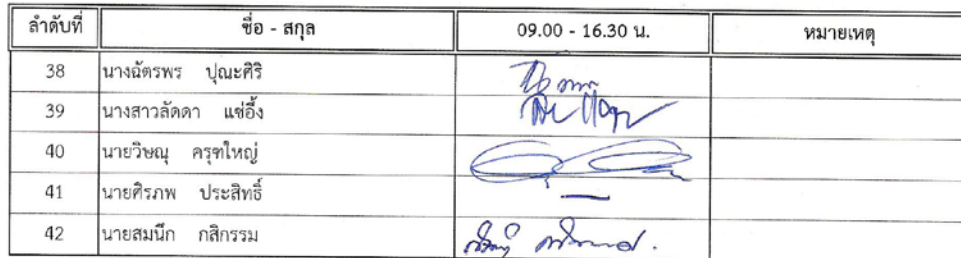 ลำดับที่ ชื่อ - สกุล 09.00 - 16.30 น. หมายเหตุ
38 นางฉัตรพร ปุณะศิริ
39 นางสาวลัดดา แซ่อึ้ง
40 นายวิษณุ ครุฑใหญ่
41 นายศิรภพ ประสิทธิ์
42 นายสมนึก กสิกรรม